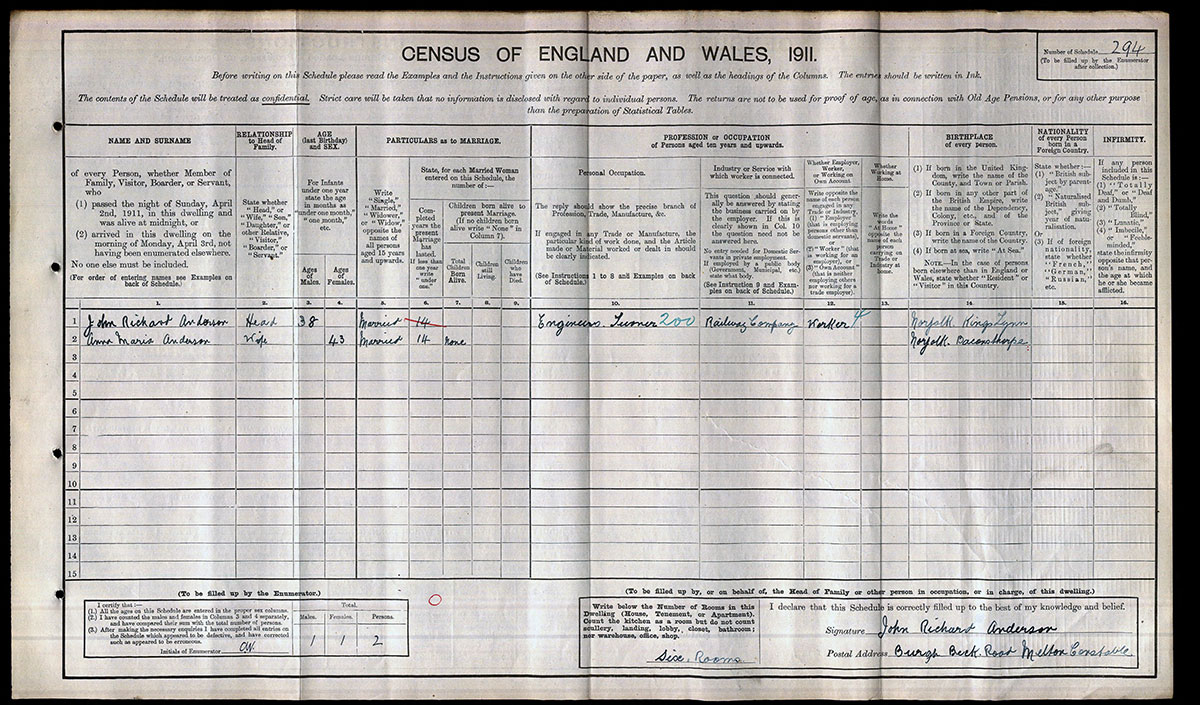 CENSUS OF ENGLAND AND WALES, 1911.
Number of Schedule 294
(To be filled up by the Enumerator
after collection.)
Before writing on this Schedule please read the Examples and the Instructions given on the other side of the paper, as well as the headings of the Columns. The entries should be written in Ink.
The contents of the Schedule will be treated as confidential. Strict care will be taken that no information is disclosed with regard to individual persons. The returns are not to be used for proof of age, as in connection with Old Age Pensions, or for any other purpose
than the preparation of Statistical Tables.
NAME AND SURNAME
of every Person, whether Member of
Family, Visitor, Boarder, or Servant,
who
(1) passed the night of Sunday, April
2nd, 1911, in this dwelling and
was alive at midnight, or
(2) arrived in this dwelling on the
morning of Monday, April 3rd, not
having been enumerated elsewhere.
No one else must be included.
(For order of entering names see Examples on
back of Schedule.)
1.
RELATIONSHIP
to Head of
Family.
State whether
"Head," or
"Wife," "Son,"
"Daughter," or
other Relative,
"Visitor,"
"Boarder," or
"Servant."
2.
AGE
(last Birthday)
and SEX.
For Infants
under one year
state the age
in months as
"under one month,"
"one month,"
etc.
Ages
of
Males.
3.
Ages
of
Females.
4.
PARTICULARS as to MARRIAGE.
Write
"Single,"
"Married,"
"Widower,"
or "Widow,"
opposite the
names of
all persons
aged 15 years
and upwards.
5.
State, for each Married Woman
entered on this Schedule, the
number of:—
Com-
pleted
years the
present
Marriage
has
lasted.
If less than
one year
write
"under
one."
6.
Children born alive to
present Marriage.
(If no children born
alive write "None" in
Column 7).
Total
Children
Born
Alive.
7.
Children
still
Living.
8.
Children
who
have
Died.
9.
PROFESSION or OCCUPATION
of Persons aged ten years and upwards.
Personal Occupation.
The reply should show the precise branch of
Profession, Trade, Manufacture, &c.
If engaged in any Trade or Manufacture, the
particular kind of work done, and the Article
made or Material worked or dealt in should
be clearly indicated.
(See Instructions 1 to 8 and Examples on back
of Schedule.)
10.
Industry or Service with
which worker is connected.
This question should gener-
ally be answered by stating
the business carried on by
the employer. If this is
clearly shown in Col. 10
the question need not be
answered here.
No entry needed for Domestic Ser-
vants in private employment.
If employed by a public body
(Government, Municipal, etc.)
state what body.
(See Instruction 9 and Exam-
ples on back of Schedule.)
11.
Whether Employer,
Worker,
or Working on
Own Account.
Write opposite the
name of each person
engaged in any
Trade or Industry,
(1) "Employer"
(that is employing
persons other than
domestic servants),
or
(2) "Worker" (that
is working for an
employer), or
(3) "Own Account"
(that is neither
employing others
nor working for a
trade employer).
12.
Whether
Working at
Home.
Write the
words
"At Home"
opposite the
name of each
person
carrying on
Trade or
Industry at
Home.
13.
BIRTHPLACE
of every person.
(1) If born in the United King-
dom, write the name of the
County, and Town or Parish.
(2) If born in any other part of
the British Empire, write
the name of the Dependency,
Colony, etc., and of the
Province or State.
(3) If born in a Foreign Country,
write the name of the Country.
(4) If born at sea, write "At Sea."
NOTE.—In the case of persons
born elsewhere than in England or
Wales, state whether "Resident" or
"Visitor" in this Country.
14.
NATIONALITY
of every Person
born in a
Foreign Country.
State whether:—
(1) "British sub-
ject by parent-
age,"
(2) "Naturalised
British sub-
ject," giving
year of natu-
ralisation.
Or
(3) If of foreign
nationality,
state whether
"French,"
"German,"
"Russian,"
etc.
15.
INFIRMITY.
If any person
included in this
Schedule is:—
(1) "Totally
Deaf," or "Deaf
and Dumb,"
(2) "Totally
Blind,"
(3) "Lunatic,"
(4) "Imbecile,"
or "Feeble-
minded,"
state the infirmity
opposite that per-
son's name, and
the age at which
he or she became
afflicted.
16.
1 John Richard Anderson Head 38 Married 14 Engineers Turner 200 Railway Company Worker 4 Norfolk Kings Lynn
2 Anna Maria Anderson Wife 43 Married 14 None Norfolk Baconsthorpe
3
4
5
6
7
8
9
10
11
12
13
14
15
(To be filled up by the Enumerator.)
I certify that:—
(1.) All the ages on this Schedule are entered in the proper sex columns.
(2.) I have counted the males and females in Columns 3 and 4 separately,
and have compared their sum with the total number of persons.
(3.) After making the necessary enquiries I have completed all entries on
the Schedule which appeared to be defective, and have corrected
such as appeared to be erroneous.
Initials of Enumerator
Total.
Males. Females. Persons.
1 1 2
(To be filled up by, or on behalf of, the Head of Family or other person in occupation, or in charge, of this dwelling.)
Write below the Number of Rooms in this
Dwelling (House, Tenement, or Apartment).
Count the kitchen as a room but do not count
scullery, landing, lobby, closet, bathroom;
nor warehouse, office, shop.
Six Rooms
I declare that this Schedule is correctly filled up to the best of my knowledge and belief.
Signature John Richard Anderson
Postal Address Burgh Beck Road Melton Constable